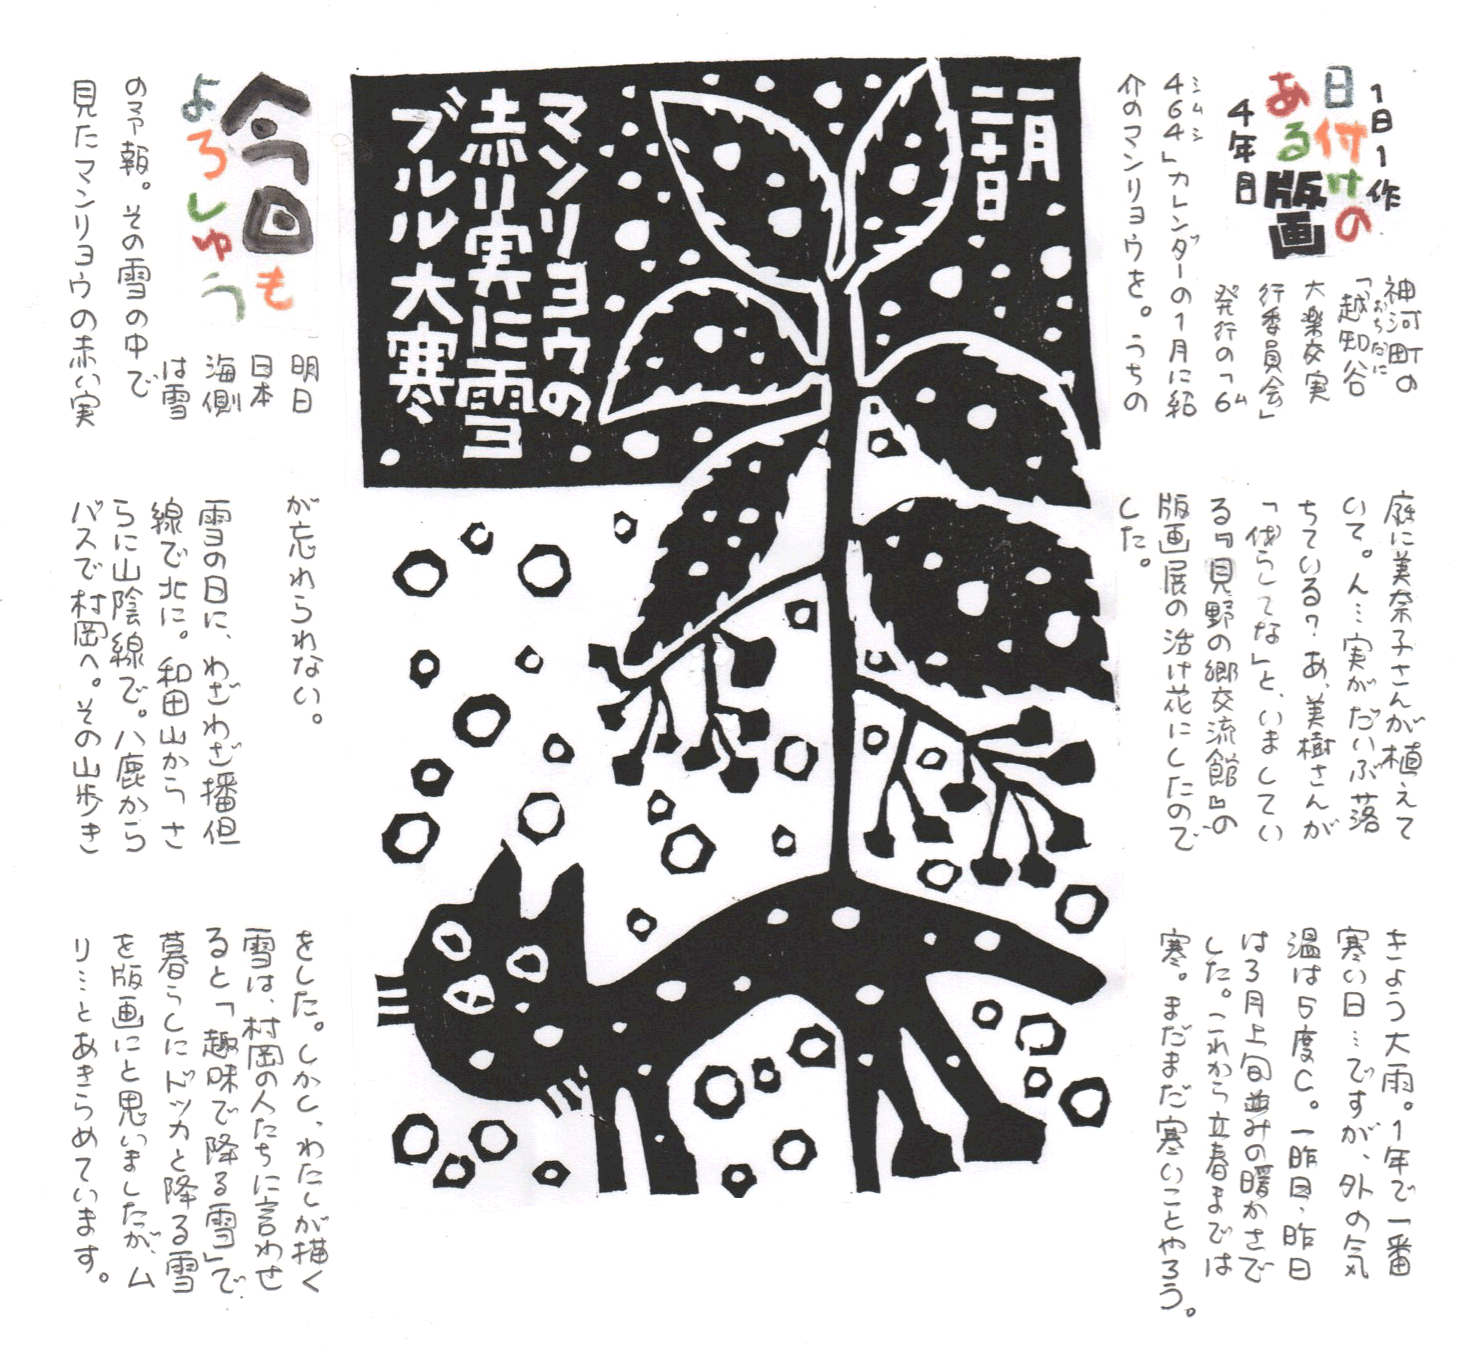 1日1作
日付けの
ある版画
4年目
神河町の
「越知谷
おちだに
大楽交実
行委員会」
発行の「6ム
464」カレンダーの1月に紹
シムシ
介のマンリョウを。うちの
庭に美奈子さんが植えて
いて。ん…実がだいぶ落
ちている?あ、美樹さんが
「伐らしてな」と、いましてい
る『見野の郷交流館』の
版画展の活け花にしたので
した。
きょう大雨。1年で一番
寒い日…ですが、外の気
温は5度C。一昨日、昨日
は3月上旬並みの暖かさで
した。これから立春までは
寒。まだまだ寒いことやろう。
一月
二十日
マンリョウの
赤い実に雪
ブルル大寒
今日も
よろしゅう
明日
日本
海側
は雪
の予報。その雪の中で
見たマンリョウの赤い実
が忘れられない。
雪の日に、わざわざ播但
線で北に。和田山からさ
らに山陰線で。八鹿から
バスで村岡へ。その山歩き
をした。しかし、わたしが描く
雪は、村岡の人たちに言わせ
ると「趣味で降る雪」で
暮らしにドッカと降る雪
を版画にと思いましたが、ム
リ…とあきらめています。